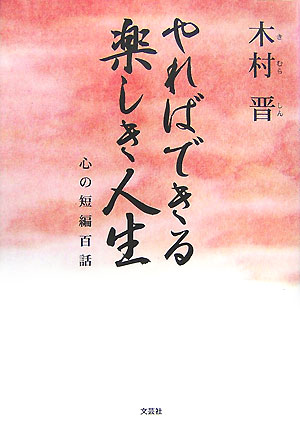 木村 晋
き むら しん
やればできる
楽しき人生
心の短編百話
文芸社